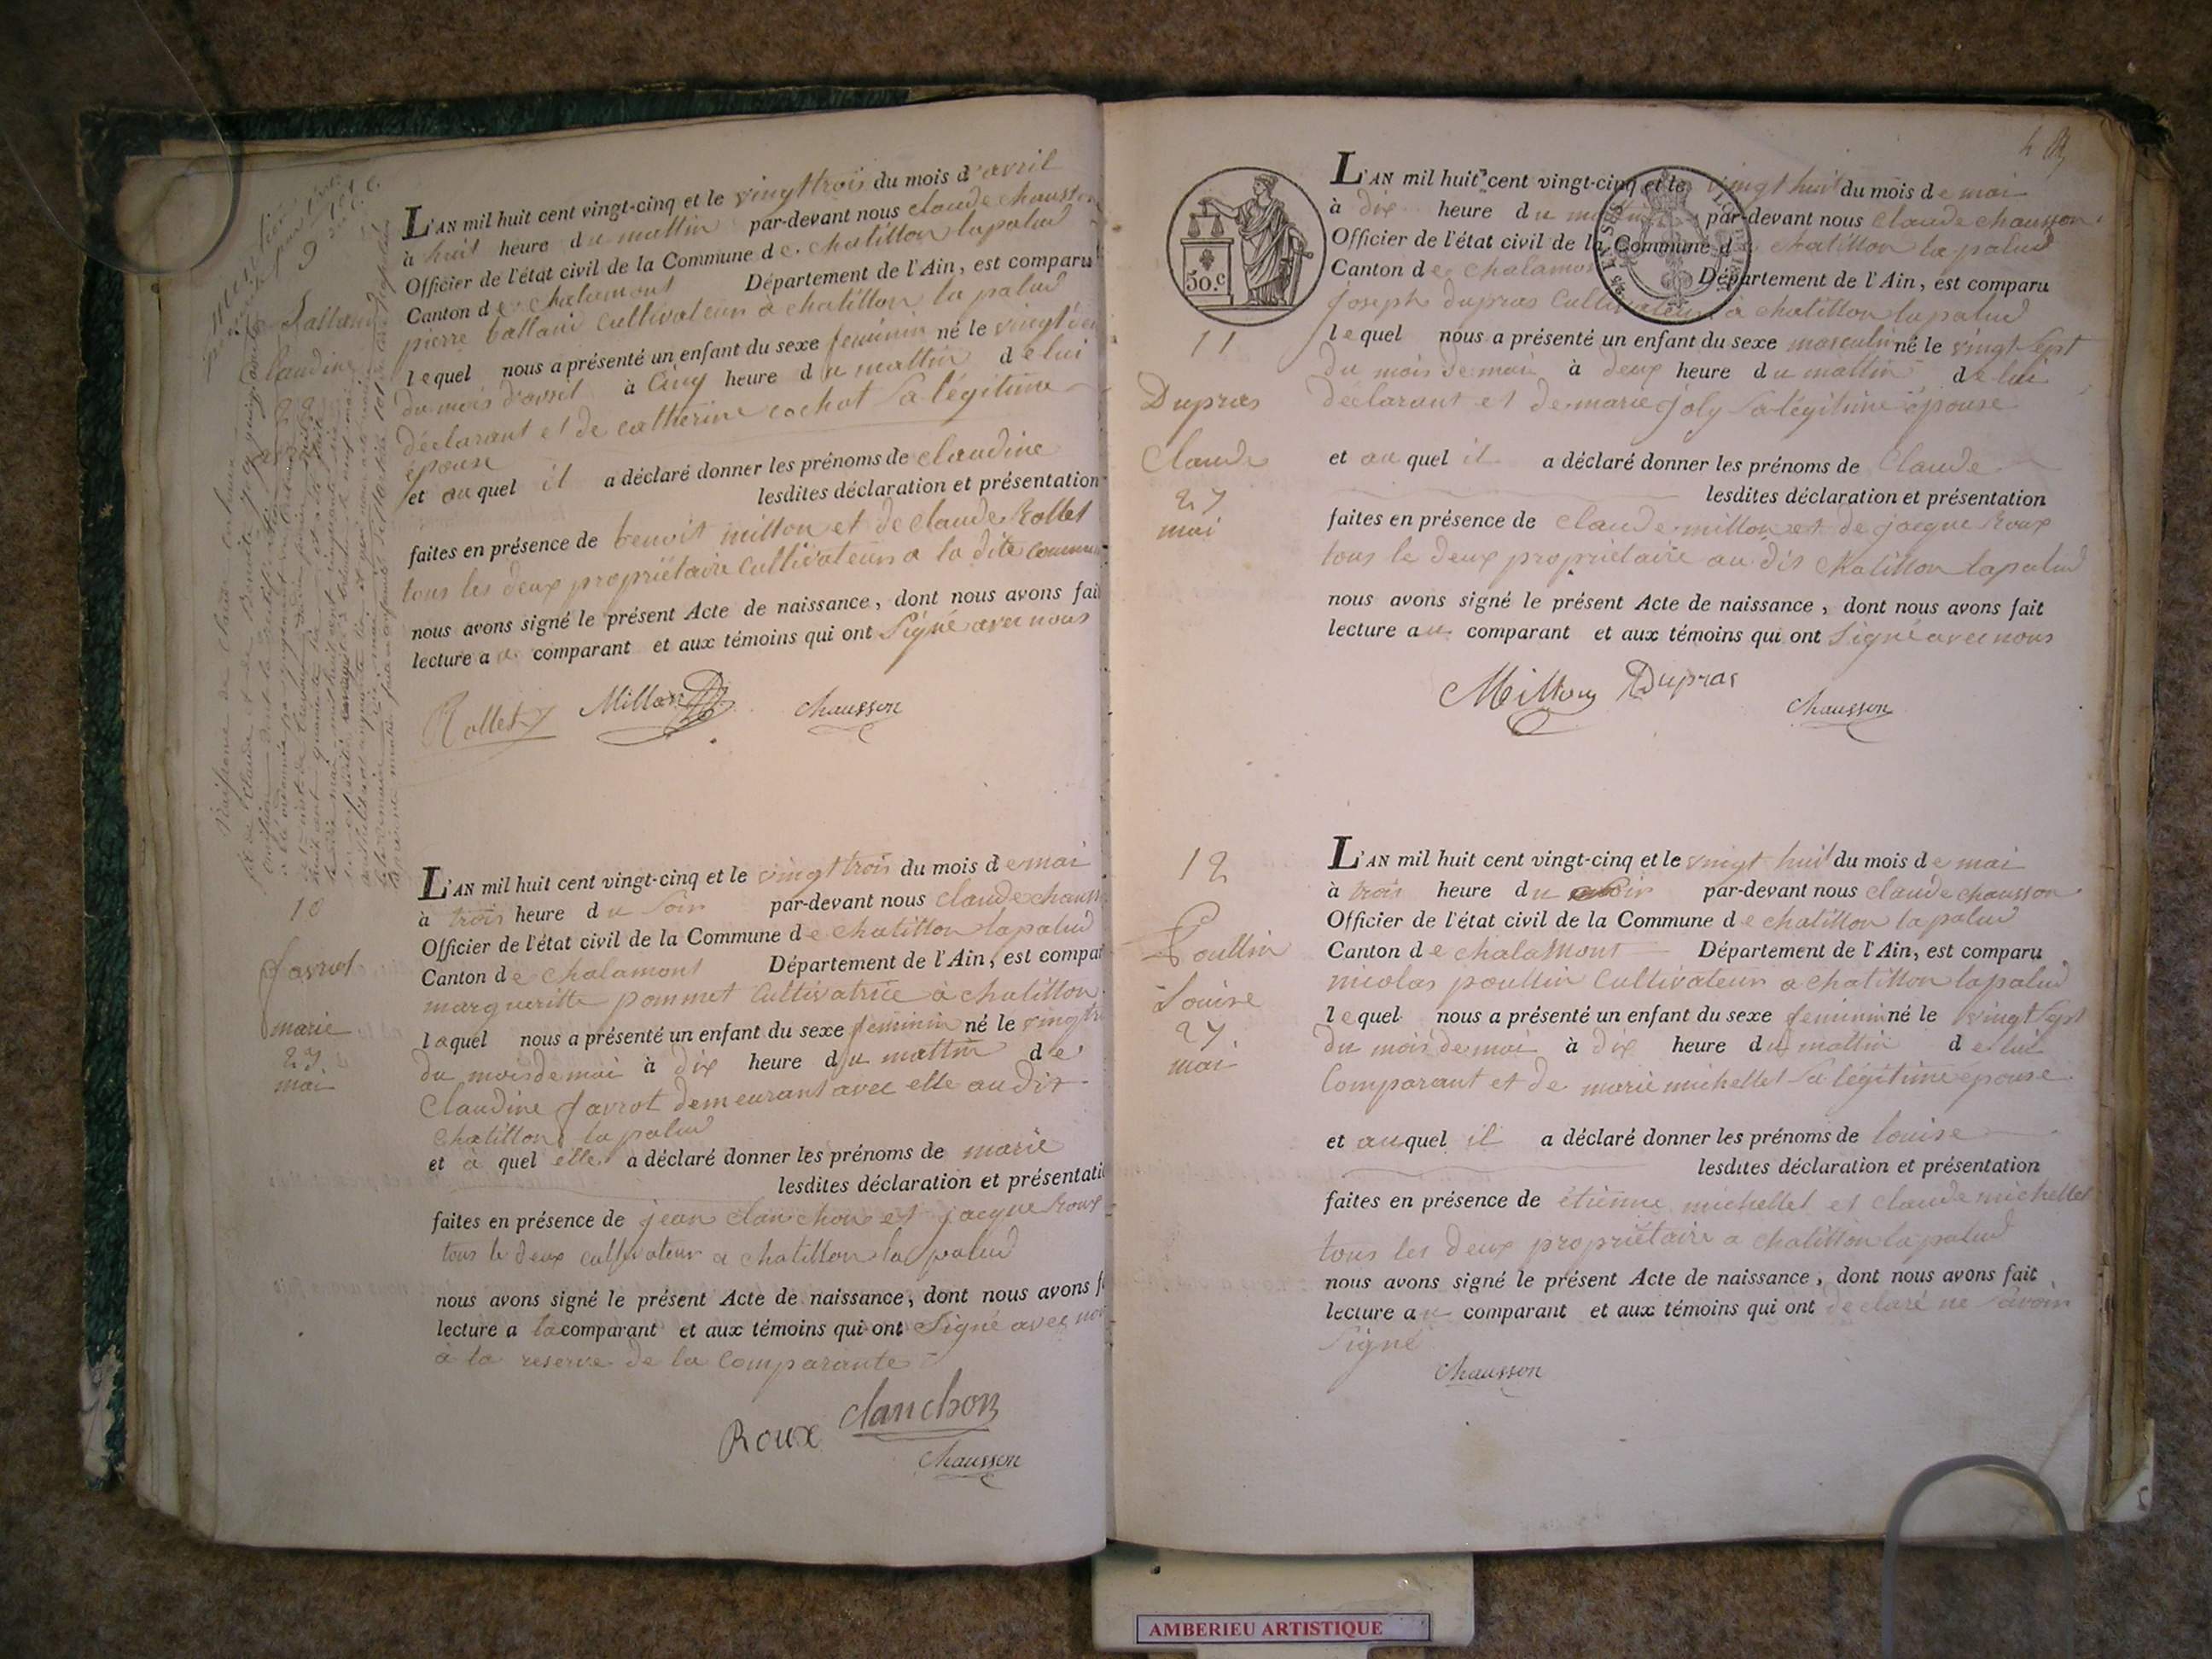 9
Balland
Claudine
22
avril
L'AN mil huit cent vingt-cinq et le vingt trois du mois d'avril
à huit heure du mattin par-devant nous claude chausson
Officier de l'état civil de la Commune de chatillon lapalud
Canton de chalamont Département de l'Ain, est comparu
pierre balland cultivateur a chatillon la palud
lequel nous a présenté un enfant du sexe feminin né le vingt deux
du mois d'avril à cinq heure du mattin de lui
déclarant et de catherine cochot sa légitime
épouse
et auquel il a déclaré donner les prénoms de claudine
lesdites déclaration et présentation
faites en présence de benoit millon et de claude Rollet
tous les deux propriétaire cultivateur a la dite commune
nous avons signé le présent Acte de naissance, dont nous avons fait
lecture au comparant et aux témoins qui ont signé avec nous
Rollet Millon chausson
10
favrot
marie
23
mai
L'AN mil huit cent vingt-cinq et le vingt trois du mois de mai
à trois heure du soir par-devant nous claude chausson
Officier de l'état civil de la Commune de chatillon lapalud
Canton de chalamont Département de l'Ain, est compar
margueritte pommet cultivatrice à chatillon
laquel nous a présenté un enfant du sexe feminin né le vingt tr
du mois de mai à dix heure du mattin de
Claudine favrot demeurant avec elle au dit
chatillon la palud
et à quel elle a déclaré donner les prénoms de marie
lesdites déclaration et présentatio
faites en présence de jean clanchon et jacque Roux
tous le deux cultivateur a chatillon la palud
nous avons signé le présent Acte de naissance, dont nous avons f
lecture a la comparant et aux témoins qui ont signé avec nou
à la reserve de la comparante
Roux clanchon
chausson
50.c
11
Dupras
Claude
27
mai
L'AN mil huit cent vingt-cinq et le vingt huit du mois de mai
à dix heure du mattin par-devant nous claude chausson
Officier de l'état civil de la Commune de chatillon la palud
Canton de chalamont Département de l'Ain, est comparu
joseph dupras cultivateur a chatillon la palud
lequel nous a présenté un enfant du sexe masculin né le vingt sept
du mois de mai à deux heure du mattin de lui
déclarant et de marie joly sa légitime épouse
et auquel il a déclaré donner les prénoms de Claude
lesdites déclaration et présentation
faites en présence de claude millon et de jacque Roux
tous le deux propriétaire au dit chatillon lapalud
nous avons signé le présent Acte de naissance, dont nous avons fait
lecture au comparant et aux témoins qui ont signé avec nous
Millon Dupras
chausson
12
Poullin
Louise
27
mai
L'AN mil huit cent vingt-cinq et le vingt huit du mois de mai
à trois heure du soir par-devant nous claude chausson
Officier de l'état civil de la Commune de chatillon la palud
Canton de chalamont Département de l'Ain, est comparu
nicolas poullin cultivateur a chatillon lapalud
lequel nous a présenté un enfant du sexe feminin né le vingt sept
du mois de mai à dix heure du mattin de lui
comparant et de marie michellet sa légitime epouse
et auquel il a déclaré donner les prénoms de louise
lesdites déclaration et présentation
faites en présence de étienne michellet et claude michellet
tous les deux propriétaire a chatillon la palud
nous avons signé le présent Acte de naissance, dont nous avons fait
lecture au comparant et aux témoins qui ont declaré ne savoir
signé
chausson
AMBERIEU ARTISTIQUE